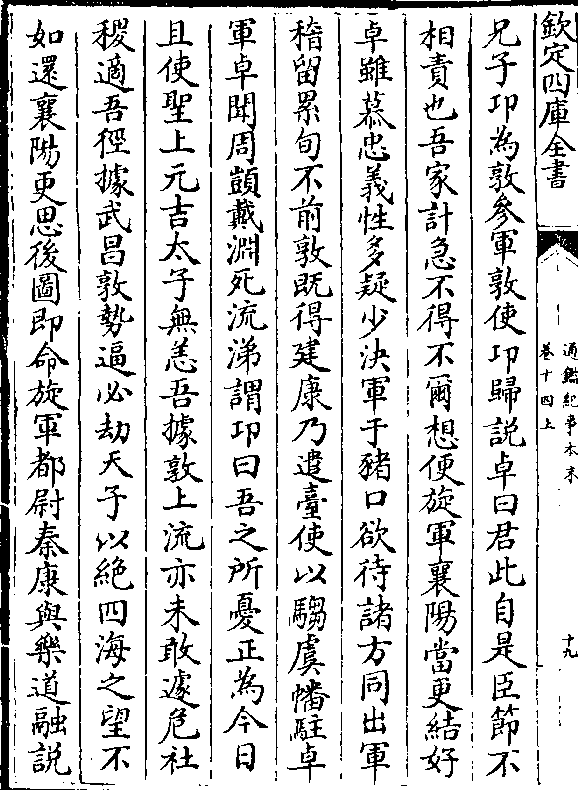 欽定四庫全書
通鑑紀事本末
卷十四上
十九
兄子卭為敦參軍敦使卭歸說卓曰君此自是臣節不
相責也吾家計急不得不爾想便旋軍襄陽當更結好
卓雖慕忠義性多疑少決軍于豬口欲待諸方同出軍
稽留累旬不前敦既得建康乃遣臺使以騶虞幡駐卓
軍卓聞周顗戴淵死流涕謂卭曰吾之所憂正為今日
且使聖上元吉太子無恙吾據敦上流亦未敢遽危社
稷適吾徑據武昌敦勢逼必劫天子以絶四海之望不
如還襄陽更思後圖即命旋軍都尉秦康與樂道融說